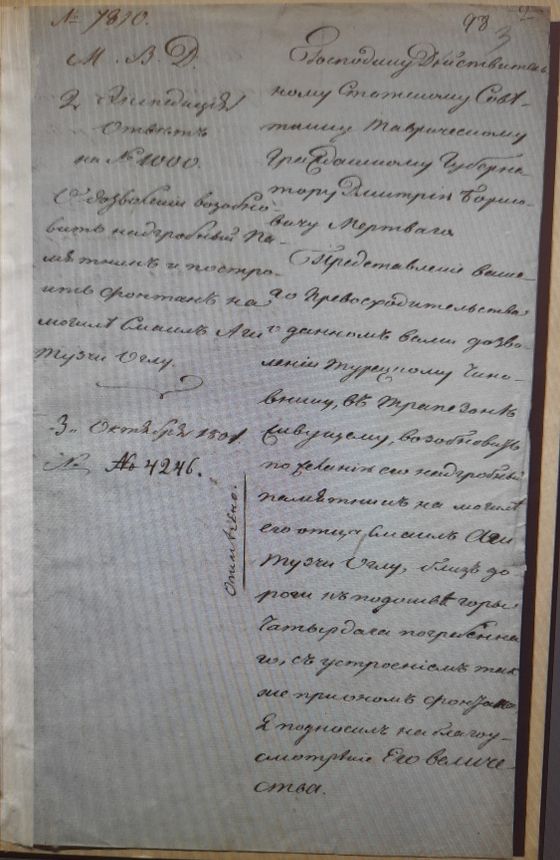 № 7810.
М. В. Д.
2 Экспедиція
Отвѣтъ
на № 1000.
О дозволеніи возобно-
вить надгробный па-
мятникъ и постро-
ить фонтанъ на
могилѣ Смаилъ Аги
Тузчи Оглу.
3 Октября 180
№ 4246.
98
3
Господину Дѣйствитель-
ному Статскому Совѣт-
нику Таврическому
Гражданскому Губерна-
тору Дмитрію Борисо-
вичу Мертваго
Представленіе ваше-
го Превосходительства
о данномъ вами дозво-
леніи Турецкому Чино-
внику, въ Трапезонтѣ
живущему, возобновить
по желанію его надгробный
памятникъ на могилѣ
его отца Смаилъ Аги
Тузчи Оглу, близъ до-
роги къ подошвѣ горы
Чатырдага погребенна-
го, съ устроеніемъ так-
же при ономъ фонтана
Я подносилъ на благоу-
смотрѣніе Его величе-
ства.
Отмѣчено.